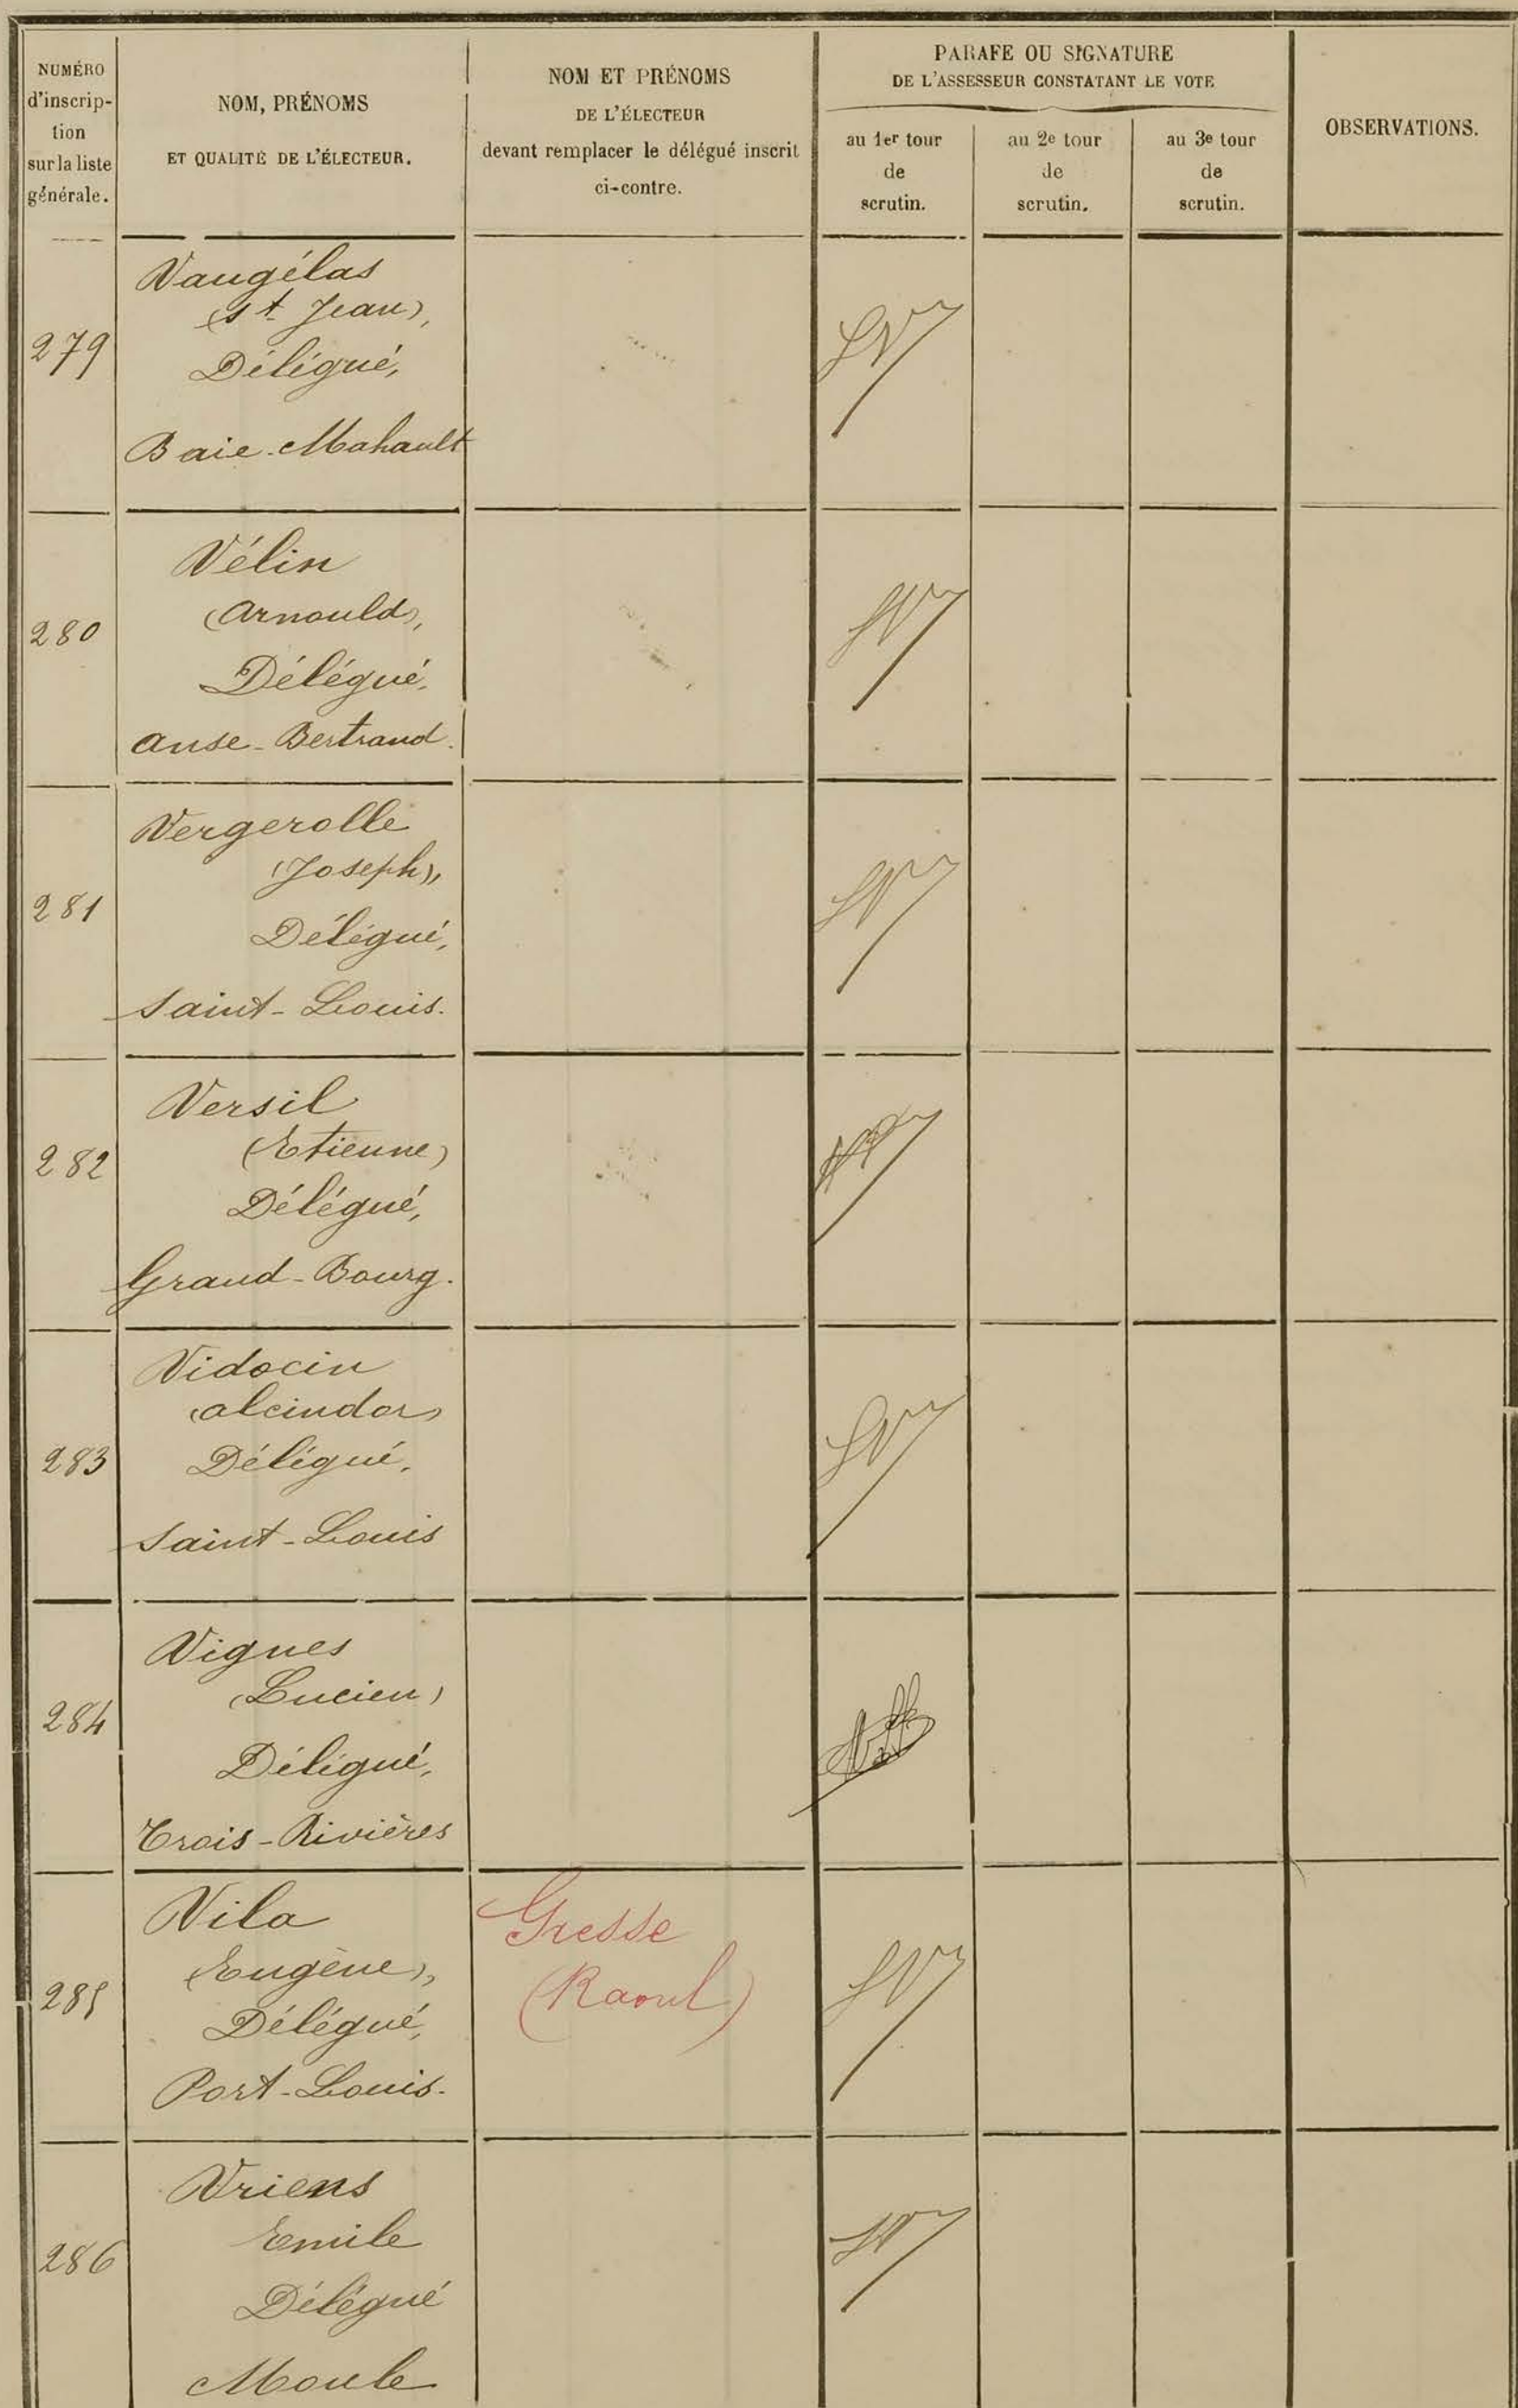 NUMÉRO
d'inscrip-
tion
sur la liste
générale.
NOM, PRÉNOMS
ET QUALITÉ DE L'ÉLECTEUR.
NOM ET PRÉNOMS
DE L'ÉLECTEUR
devant remplacer le délégué inscrit
ci-contre.
PARAFE OU SIGNATURE
DE L'ASSESSEUR CONSTATANT LE VOTE
au 1er tour
de
scrutin.
au 2e tour
de
scrutin.
au 3e tour
de
scrutin.
OBSERVATIONS.
279
Vaugélas
(St Jean),
Délégué,
Baie-Mahault
280
Vélin
(Arnould),
Délégué,
Anse-Bertrand.
281
Vergerolle
(Joseph),
Délégué,
Saint-Louis.
282
Versil
(Etienne)
Délégué,
Grand-Bourg.
283
Vidocin
(alcindor)
Délégué,
Saint-Louis
284
Vignes
(Lucien)
Délégué,
Trois-Rivières
285
Vila
(Eugène),
Délégué,
Port-Louis.
Gresse
(Raoul)
286
Vriens
Emile
Délégué
Moule